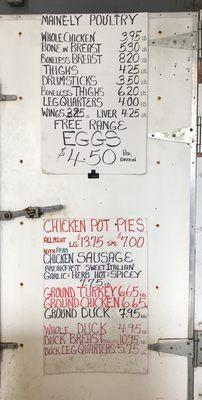 MAINE-LY POULTRY
WHOLE CHICKEN 3.95 LB.
BONE IN BREAST 5.30 LB.
BONELESS BREAST 8.20 LB.
THIGHS 4.25 LB.
DRUMSTICKS 3.50 LB.
BONELESS THIGHS 6.20 LB.
LEG QUARTERS 4.00 LB.
WINGS 3.25 LB. LIVER 4.25 LB.
FREE RANGE
EGGS
$4.50 PER DOZEN
CHICKEN POT PIES
ALL MEAT LG 13.75 SM $7.00
WITH PEAS
CHICKEN SAUSAGE
BREAKFAST SWEET ITALIAN
GARLIC & HERB HOT & SPICEY
7.75 LB.
GROUND TURKEY 6.65 LB.
GROUND CHICKEN 6.65 LB.
GROUND DUCK 7.95 LB.
WHOLE DUCK 4.95 LB.
DUCK BREAST 10.95 LB.
DUCK LEG QUARTERS 5.75 LB.